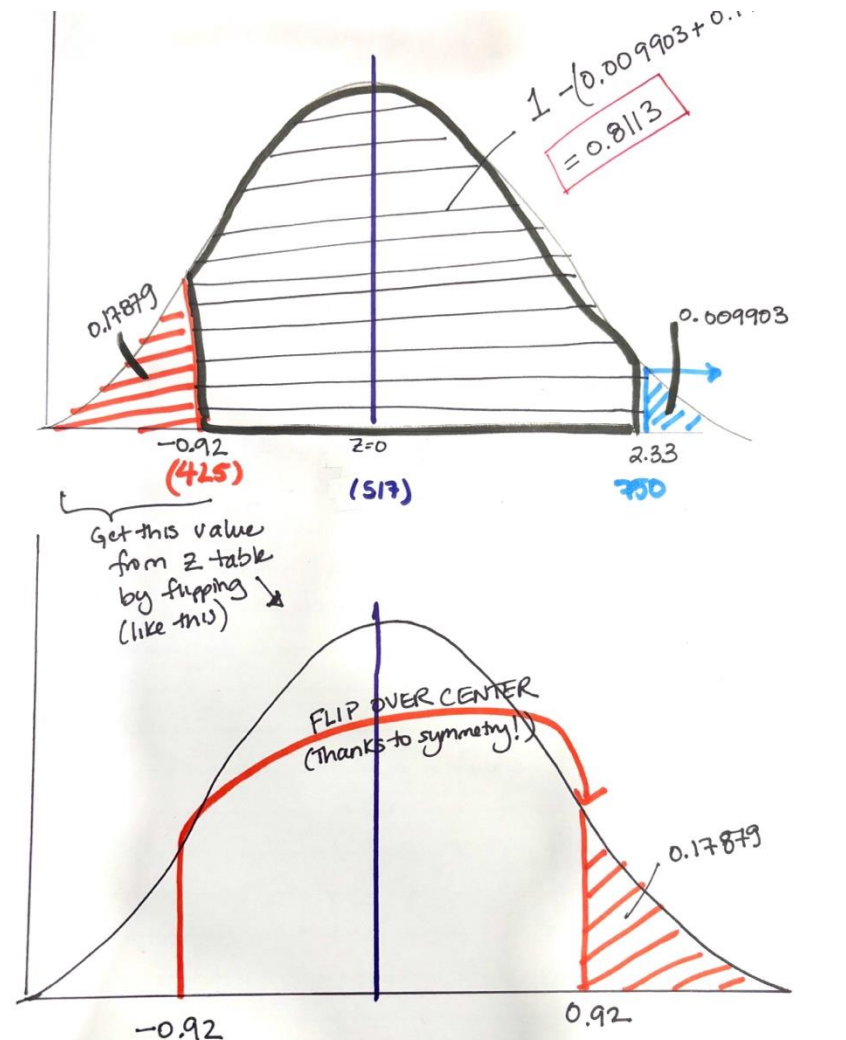 1 -(0.009903 + 0.1
= 0.8113
0.17879
0.009903
-0.92
z=0
2.33
(425)
(517)
750
Get this value
from z table
by flipping
(like this)
FLIP OVER CENTER
(Thanks to symmetry!)
0.17879
-0.92
0.92